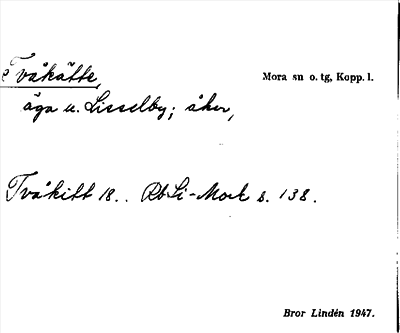 Tvåkätte, Mora sn o. tg, Kopp. l.
äga u. Lisselby; åker,
Tvåkitt 18.. RbLi-Mork s. 138.
Bror Lindén 1947.